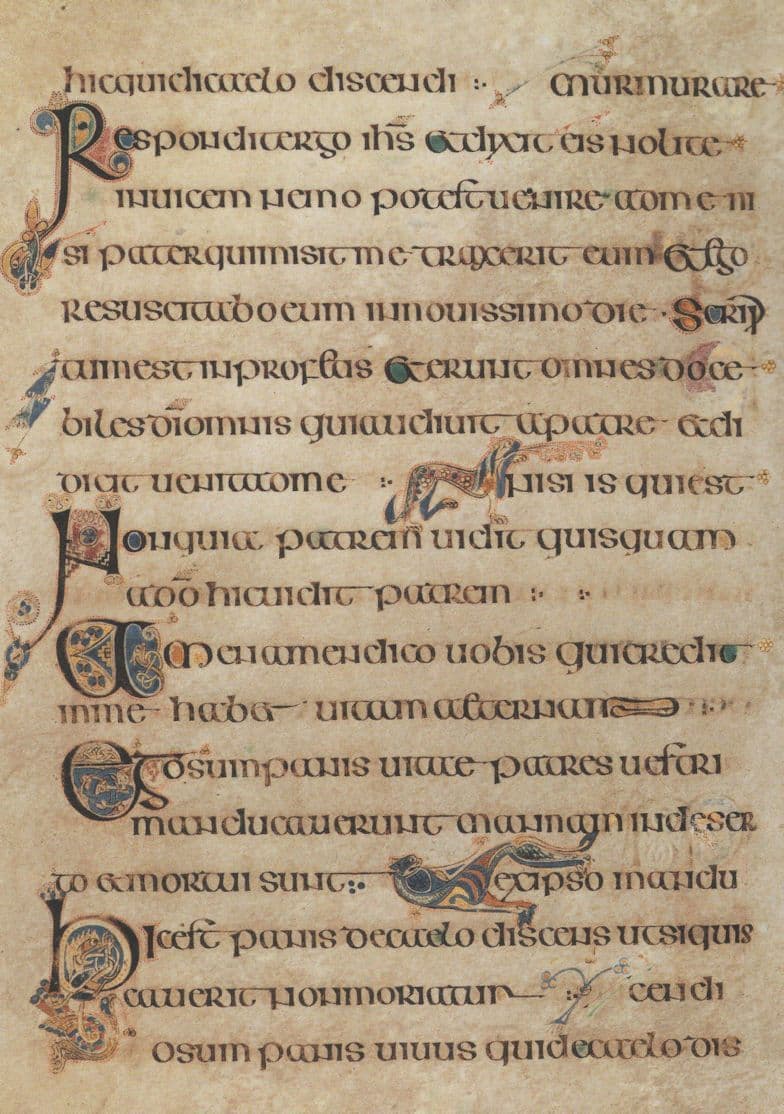 hicquidicaelo discendi :· murmurare
Respondit ergo ihs et dixit eis nolite
inuicem nemo potest uenire ad me ni
si pater qui misit me traxerit eum et ego
resuscitabo eum in nouissimo die · Scrip
tum est in profetis et erunt omnes doce
biles di omnis qui audiuit a patre et di
dicit uenit ad me :· nisi is qui est
Non quia patrem uidit quisquam
a do hic uidit patrem :· :·
Amen amen dico uobis qui credit
in me habet uitam aeternam
Ego sum panis uitae patres uestri
manducauerunt manna in deser
to et mortui sunt :· ex ipso mandu
Hic est panis de caelo discens ut si quis
cauerit non moriatur :· cendi
osum panis uiuus qui de caelo dis